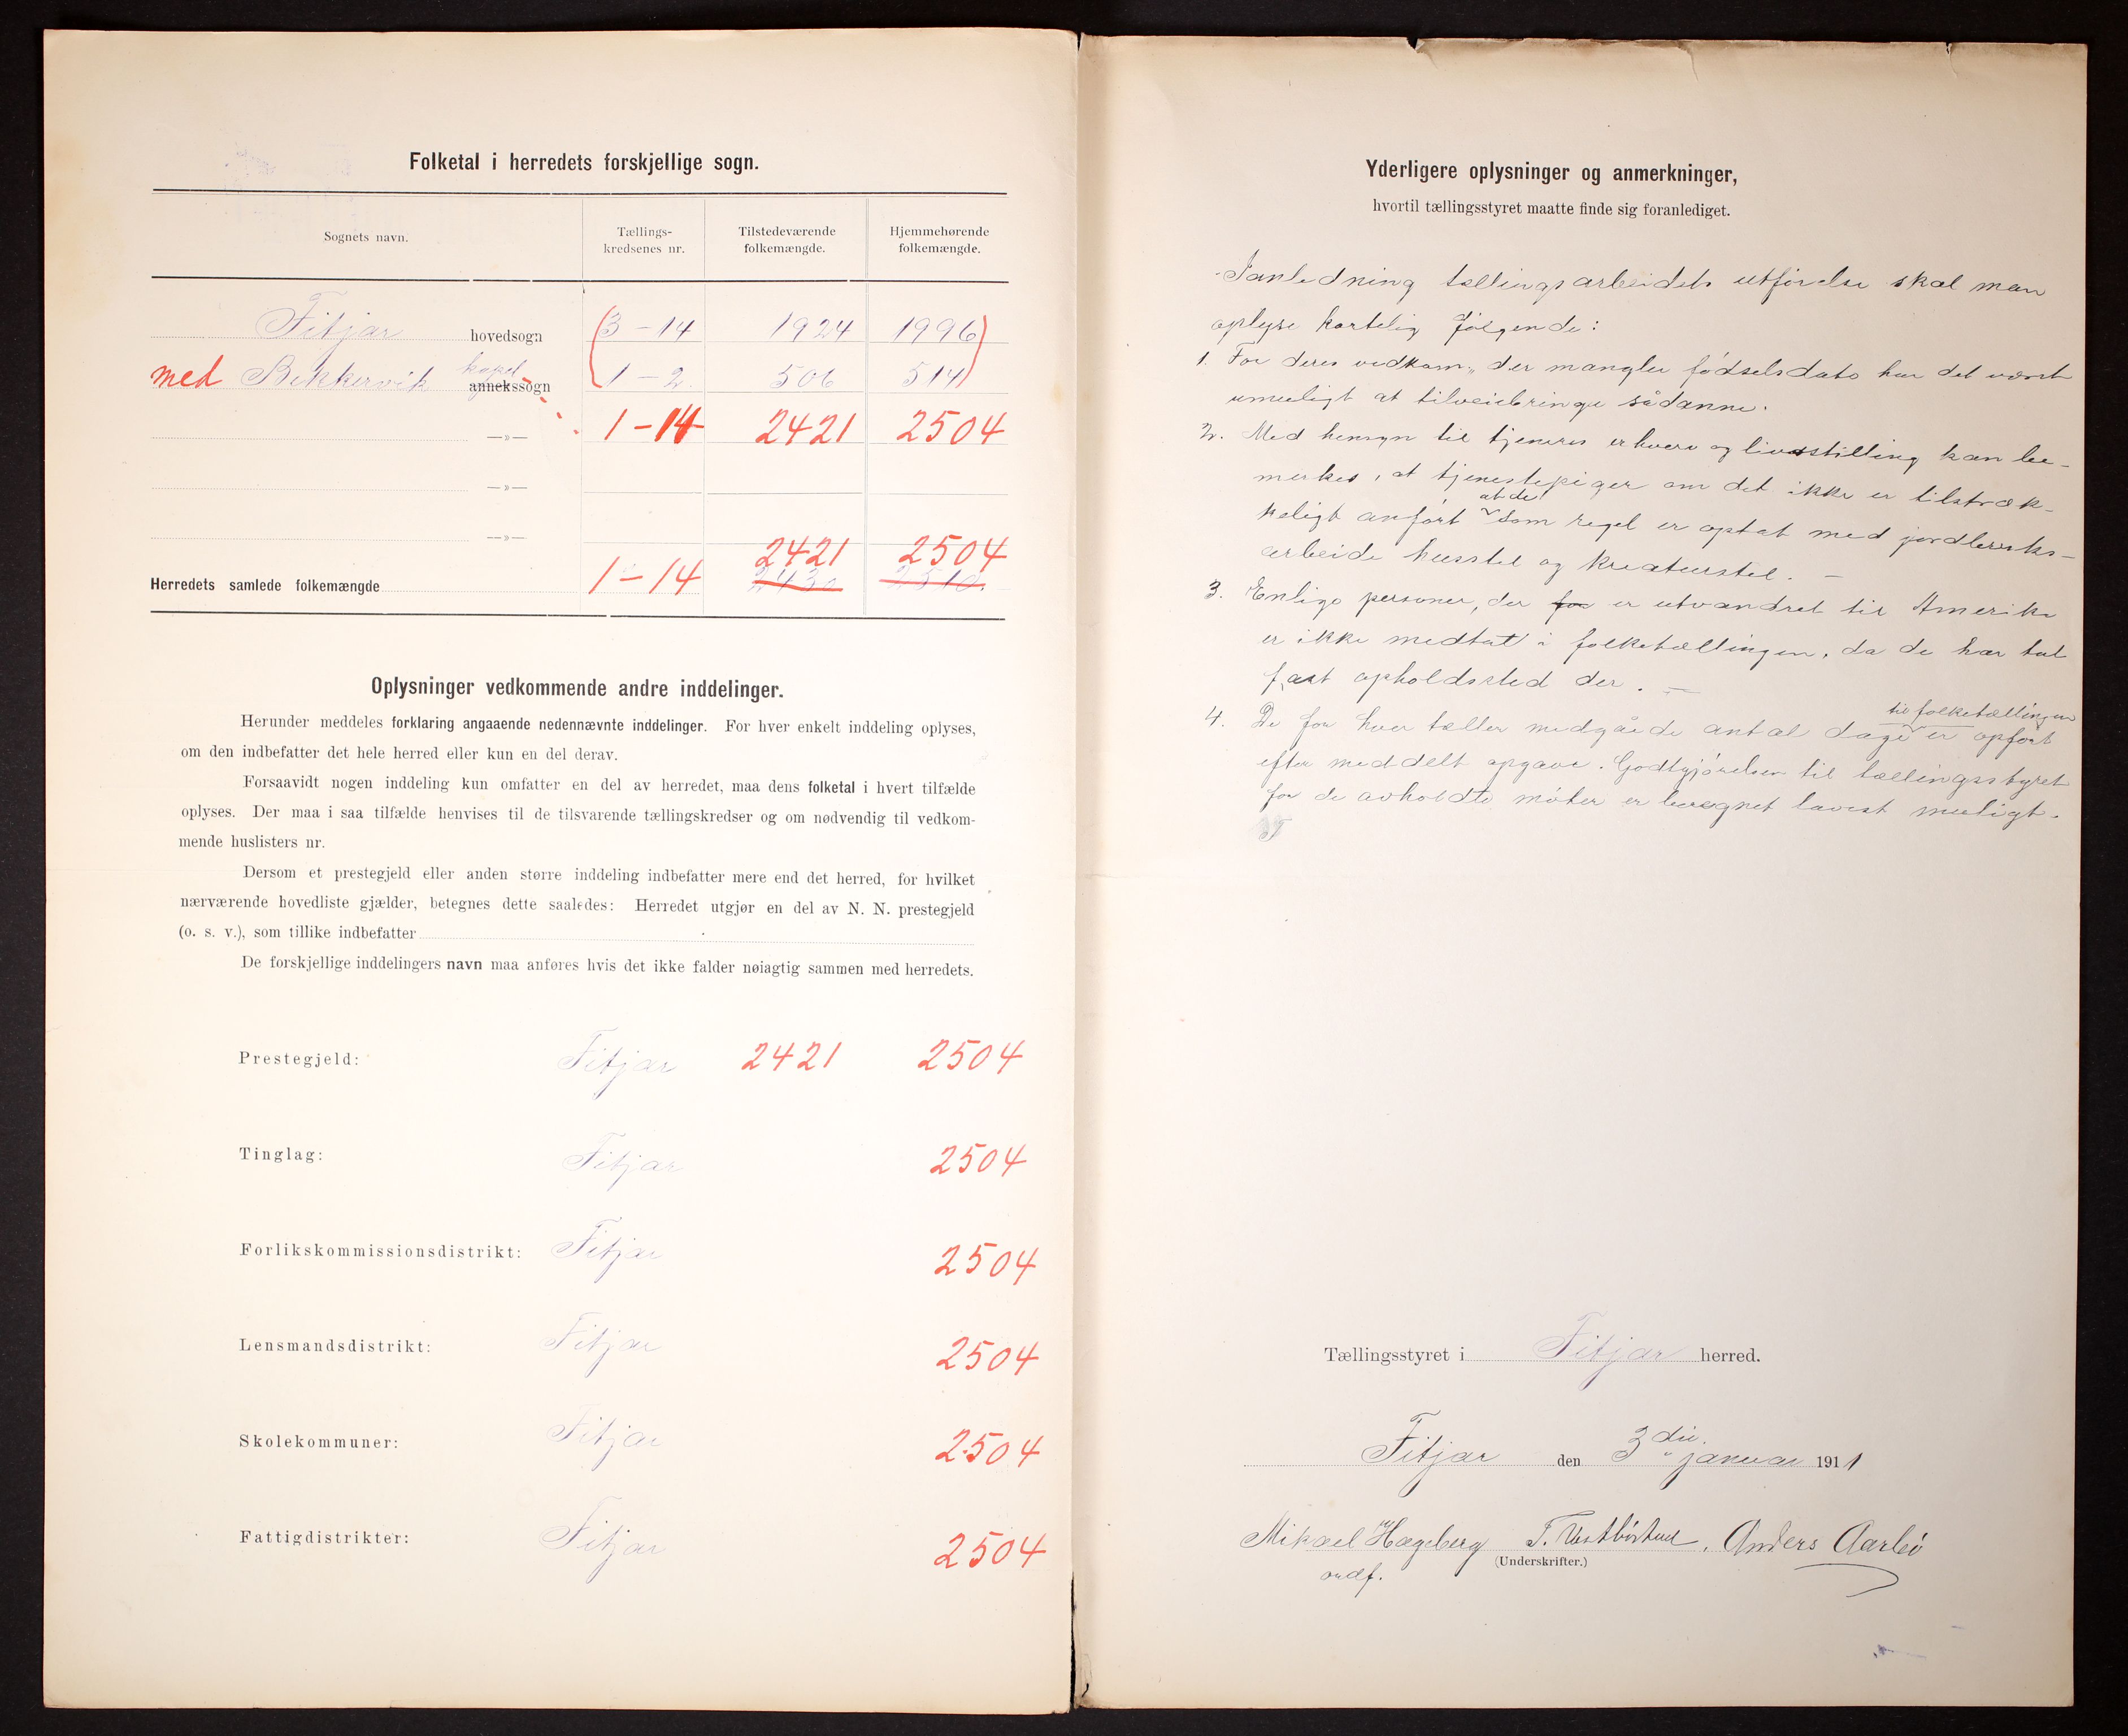 Folketal i herredets forskjellige sogn.
Sognets navn.
Tællings-
kredsenes nr.
Tilstedeværende
folkemængde.
Hjemmehørende
folkemængde.
Fitjar hovedsogn (3-14 1924 1996)
med Bekkervik kapel annekssogn (1-2. 506 514)
—»— 1-14 2421 2504
—»—
—»—
2421 2504
Herredets samlede folkemængde 1-14 2430 2510.
Oplysninger vedkommende andre inddelinger.
Herunder meddeles forklaring angaaende nedennævnte inddelinger. For hver enkelt inddeling oplyses,
om den indbefatter det hele herred eller kun en del derav.
Forsaavidt nogen inddeling kun omfatter en del av herredet, maa dens folketal i hvert tilfælde
oplyses. Der maa i saa tilfælde henvises til de tilsvarende tællingskredser og om nødvendig til vedkom-
mende huslisters nr.
Dersom et prestegjeld eller anden større inddeling indbefatter mere end det herred, for hvilket
nærværende hovedliste gjælder, betegnes dette saaledes: Herredet utgjør en del av N. N. prestegjeld
(o. s. v.), som tillike indbefatter
De forskjellige inddelingers navn maa anføres hvis det ikke falder nøiagtig sammen med herredets.
Prestegjeld: Fitjar 2421 2504
Tinglag: Fitjar 2504
Forlikskommissionsdistrikt: Fitjar 2504
Lensmandsdistrikt: Fitjar 2504
Skolekommuner: Fitjar 2504
Fattigdistrikter: Fitjar 2504
Yderligere oplysninger og anmerkninger,
hvortil tællingsstyret maatte finde sig foranlediget.
I anledning tællingsarbeidets utførelse skal man
oplyse kortelig følgende:
1. For deres vedkom., der mangler fødselsdato har det været
umuligt at tilveiebringe sådanne.
2. Med hensyn til tjeneres erhverv og livsstilling kan be-
merkes, at tjenestepiger om det ikke er tilstræk-
at de
keligt anført som regel er optat med jordbruks-
arbeide husstel og kreaturstel. —
3. Enlige personer, der for er utvandret til Amerika
er ikke medtat i folketællingen, da de har tat
fast opholdssted der. —
til folketællingen
4. De for hver tæller medgåede antal dage er opført
efter meddelt opgave. Godtgjørelsen til tællingsstyret
for de avholdte møter er beregnet lavest muligt.
Tællingsstyret i Fitjar herred.
Fitjar den 3die januar 1911
Mikael Hageberg T. Vestbøstad, Anders Aarbø
(Underskrifter.)
ordf.